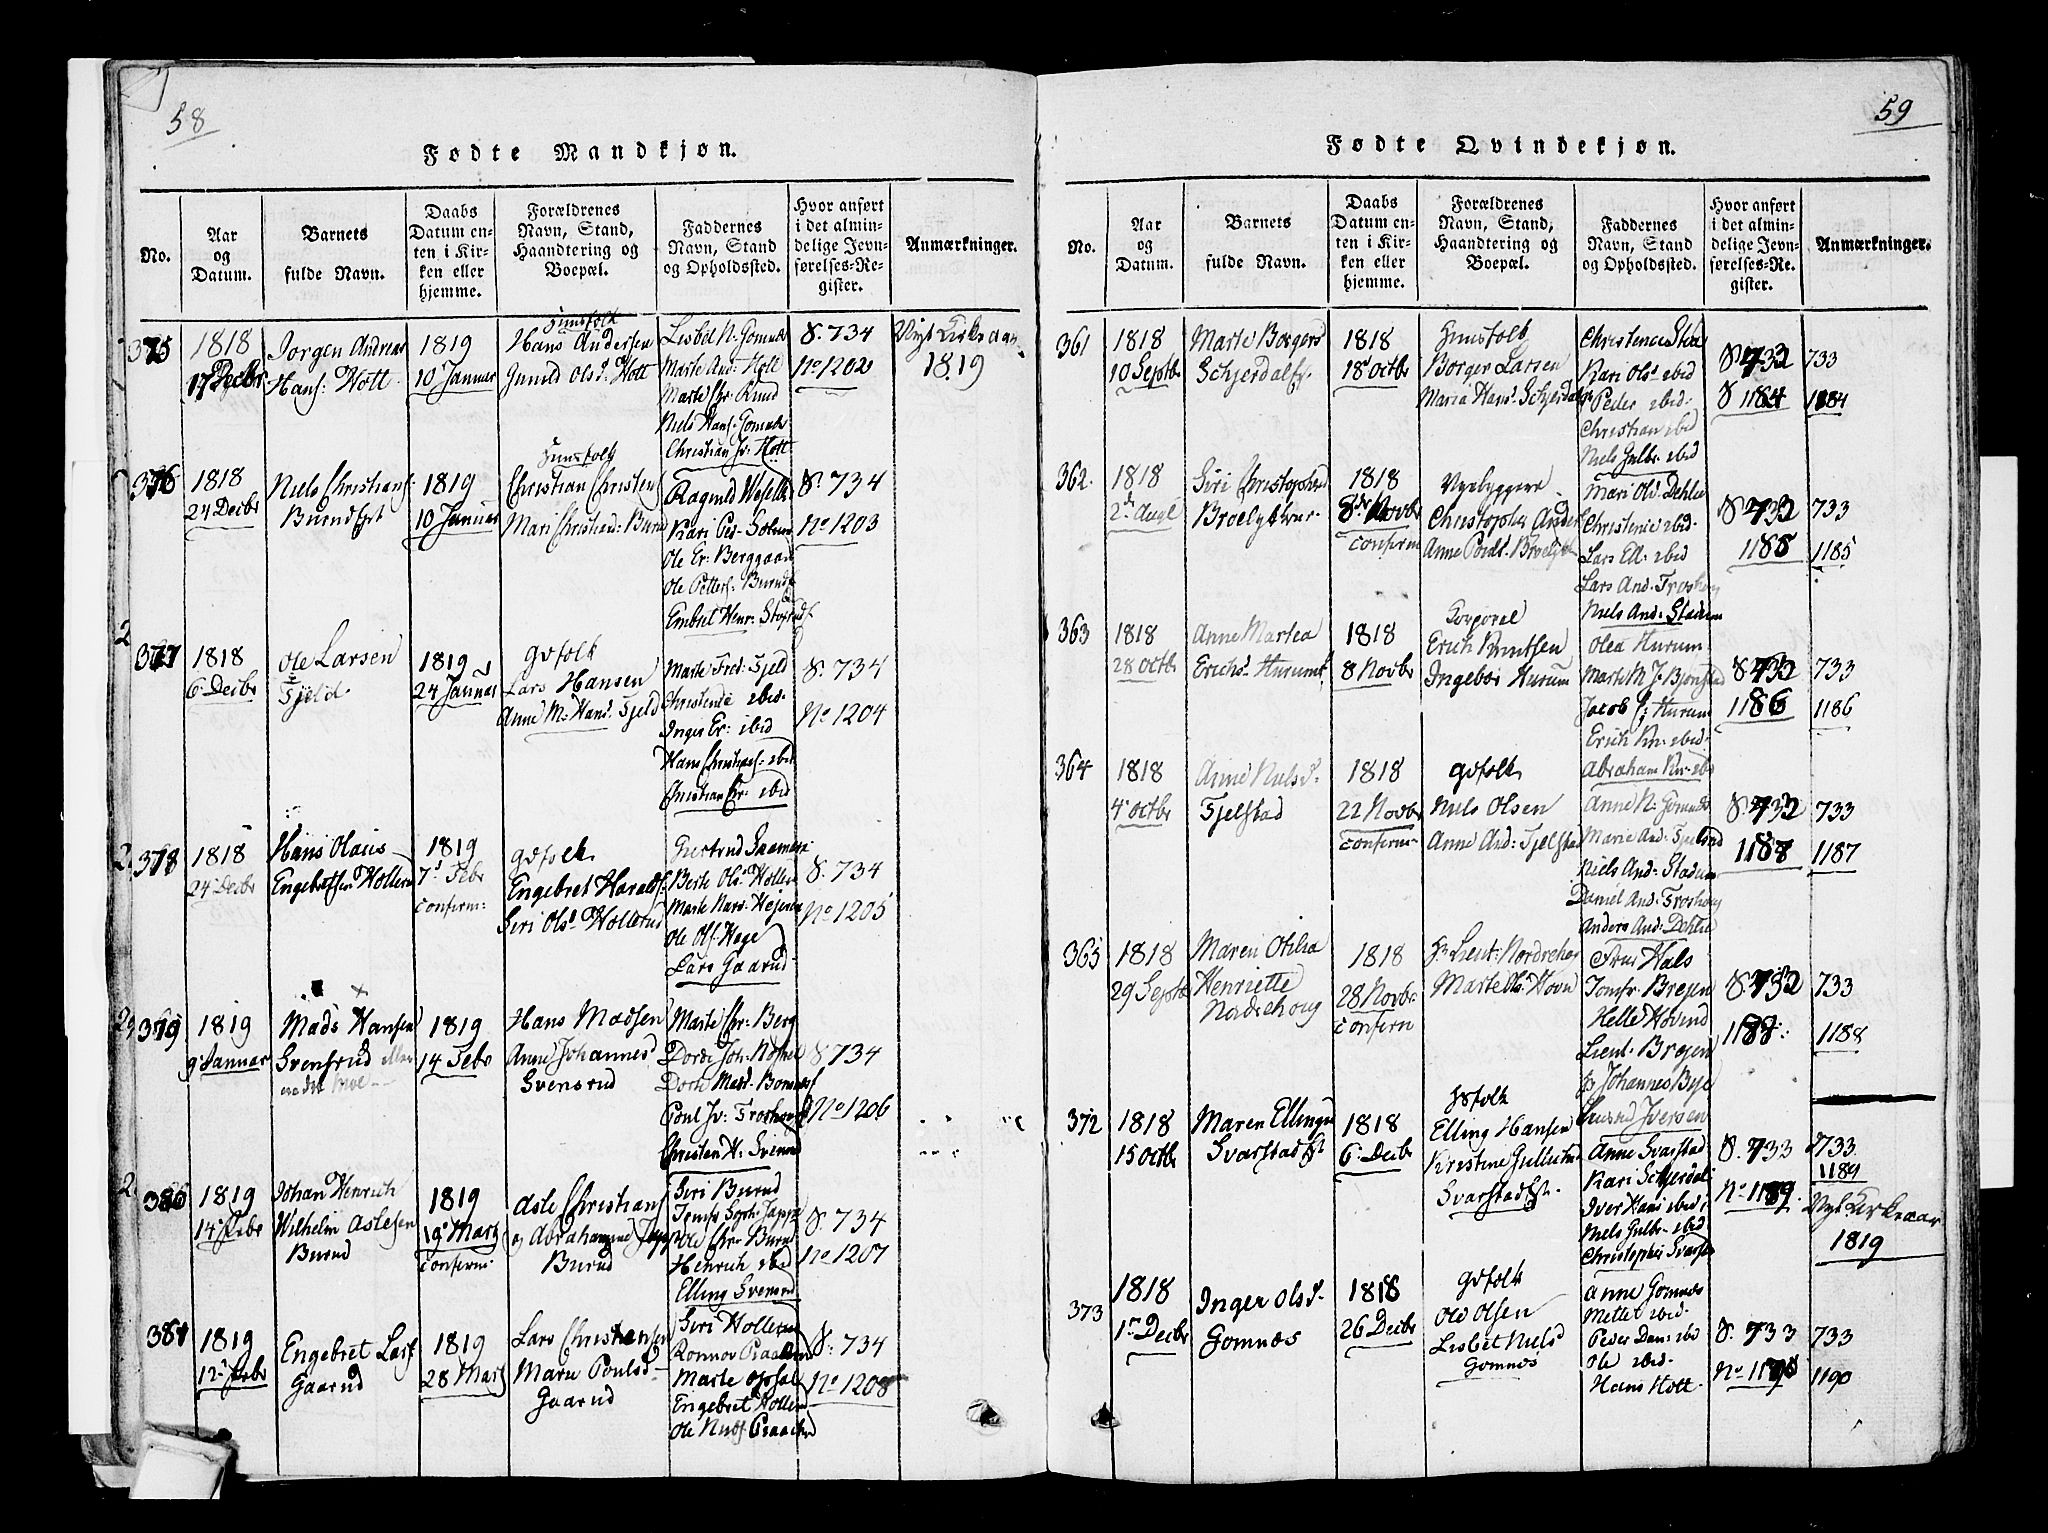 58
Fødte Mandkjøn.
No.
Aar og Datum.
Barnets fulde Navn.
Daabs Datum enten i Kirken eller hjemme.
Forældrenes Navn, Stand, Haandtering og Boepæl.
Faddernes Navn, Stand og Opholdssted.
Hvor anført i det almindelige Jevnførelses-Register.
Anmærkninger.
375
1818
17 Decbr
Jorgen Andreas
Hans: Hott
1819
10 Januar
Huusfolk
Hans Andersen
Gunild Olsd: Hott
Lisbet N: Gomnæs
Marte And: Hott
Marte Chr: Rund
Niels Hans: Gomnæs
Christian Jv: Hott
S. 734
No 1202
Nyt Kirkeaar
1819
376
1818
24 Decbr
Niels Christians:
Burud
1819
10 Januar
Huusfolk
Christian Christens
Mari Christiand: Burud
Ragnild
Kari Ped:
Ole Er: Berggaard
Ole Petters: Burud
Embret Henr:
S. 734
No 1203
377
1818
6 Decbr
Ole Larsen
Fjeld
1819
24 Januar
Gdfolk
Lars Hansen
Anne M: Hansd: Fjeld
Marte Fred: Fjeld
Christende ibid
Inger Er: ibid
Hans Christians: ibid
Christian Chr: ibid
S. 734
No 1204
378
1818
24 Decbr
Hans Olaus
Engebretsen Hollerud
1819
7 Febr
confirm:
Gdfolk
Engebret Haralds:
Siri Olsd Hollerud
Gertrud
Berte Olsd Hollerud
Marte Nars:
Ole Ols: Hage
Lars Gaarud
S. 734
No 1205
379
1819
9 Januar
Mads Hansen
Svensrud eller
1819
14 Febr
Hans Madsen
Anne Johannesd
Svensrud
Marte Chr: Berg
Dorte Joh:
Dorte Mad:
Poul Jv: Froshoug
Christen H: Svensrud
S 734
No 1206
380
1819
14 Febr
Johan Henrich
Wilhelm Aslesen
Burud
1819
19 Marts
confirm:
Asle Christians
og Abrahamine
Burud
Siri Burud
Jomfr Soph: Jappe
Ole Chr: Burud
Henrich ibid
Elling Svensrud
S. 734
No 1207
381
1819
12 Febr
Engebret Lars:
Gaarud
1819
28 Mars
Lars Christensen
Maru Poulsd
Gaarud
Siri Hollerud
Ronnov
Marte Opsal
Engebret Hollerud
Ole
S. 734
No 1208
59
Fødte Qvindekjøn.
No.
Aar og Datum.
Barnets fulde Navn.
Daabs Datum enten i Kirken eller hjemme.
Forældrenes Navn, Stand, Haandtering og Boepæl.
Faddernes Navn, Stand og Opholdssted.
Hvor anført i det almindelige Jevnførelses-Register.
Anmærkninger.
361
1818
10 Septbr
Marte Borgers
Schjerdal
1818
18 Octbr
Huusfolk
Borger Larsen
Maria Hans: Schjerdal
Christence
Kari Olsd ibid
Peder ibid
Christian ibid
Niels Gulbr: ibid
S 732
1184
733
1184
362
1818
2 Aug
Siri Christophersd
1818
8 Novbr
confirm
Nyebyggere
Christopher Anders
Anne Pouls:
Mari Old: Dehlie
Christenie ibid
Lars Ell: ibid
Lars And: Froshoug
Niels And: Stadum
S 732
1185
733
1185
363
1818
28 Octbr
Anne Martea
Erichs: Hurum
1818
8 Novbr
Corporal
Erich Knutsen
Ingebor Hurum
Olea Hurum
Marte M J:
Jacob J: Hurum
Erich Kn: ibid
Abraham Kn: ibid
S 732
1186
733
1186
364
1818
4 Octbr
Anne Nielsd
Fjelstad
1818
22 Novbr
confirm
Gdfolk
Niels Olsen
Anne And: Fjelstad
Anne N: Gomnæs
Marie And: Fjelstad
Niels And: Stadum
Daniel And: Froshoug
Anders And: Dehlie
S. 732
1187
733
1187
365
1818
29 Septbr
Maren Otilia
Henriette
Nordrehoug
1818
28 Novbr
confirm
Hr Lieut: Nordrehoug
Marte Ols: Hovn
Frue Hals
Jomfr. Brejen
Helle Hovind
Lieut. Brejen
Johannes Bye
Iversen
S 732
1188
733
1188
372
1818
15 Octbr
Maren Ellings
Svarstad
1818
6 Decbr
Gdfolk
Elling Hansen
Kristine Gulbrand
Svarstad
Anne Svarstad
Kari Schjerdal
Iver Hans ibid
Niels Gulbr: ibid
Christopher Svarstad
S. 733
No 1189
733
1189
Nyt Kirkeaar
1819
373
1818
1 Decbr
Inger Olsd
Gomnæs
1818
26 Decbr
Gdfolk
Ole Olsen
Lisbet Nielsd
Gomnæs
Anne Gomnæs
Mette ibid
Peder Dan: ibid
Ole ibid
Hans Hott
S. 733
No 1190
733
1190